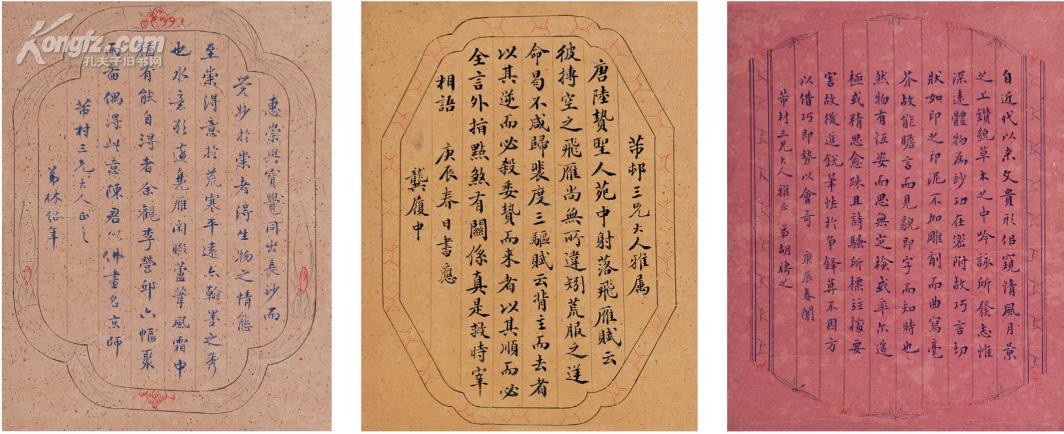 Kongfz.com
孔夫子旧书网
惠崇與寶覺同出長沙而
覺妙於崇者得生物之情態
至崇得意於荒寒平遠亦翰墨之秀
也水亥初邊凫雁閑暇蘆葦風霜中
猶有能自得者余觀李營邱六幅聚
而画偶得此意陳君以佛畫名京師
芾村三兄大人正之
弟林紹年
芾邨三兄大人雅属
唐陸贄聖人苑中射落飛雁賦云
彼摶空之飛雁尚無所違矧荒服之逆
命曷不咸歸裴度三驅賦云背主而去者
以其逆而必殺委贄而來者以其順而必
全言外指點煞有關係真是救時宰
相語
庚辰春日書應
龔履中
自近代以來文貴形佀窺情風月景
之上鑽貌草木之中吟詠所發志惟
深遠體物為妙功在密附故巧言切
狀如印之印泥不加雕削而曲寫毫
芥故能瞻言而見貌即字而知時也
然物有恆姿而思無定檢或率尔造
極或精思愈疎且詩騷所標竝據要
害故後進銳筆怯於爭鋒莫不因方
以借巧即勢以會奇 庚辰春閏
芾村三兄大人雅正 弟胡聘之